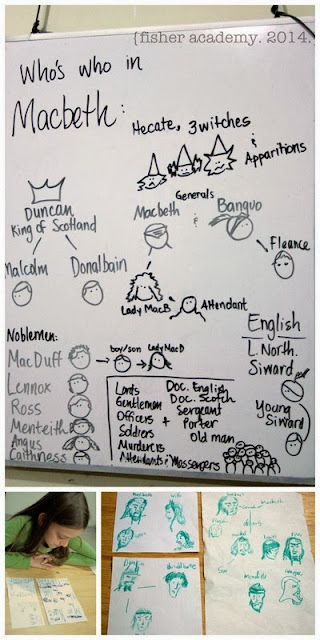 {fisher academy. 2014.
Who's who in
Macbeth:
Hecate, 3 witches
&
Apparitions
Duncan
King of Scotland
Malcolm
Donalbain
Generals
Macbeth
&
Banquo
Fleance
Lady MacB
Attendant
English
L. North.
Siward
Young
Siward
Noblemen:
MacDuff
boy/son
Lady MacD
Lennox
Ross
Menteith
Angus
Caithness
Lords
Gentlemen
Officers
Soldiers
Murderers
Attendants & Messengers
+
Doc. English
Doc. Scotch
Sergeant
Porter
Old man
Macbeth
wife